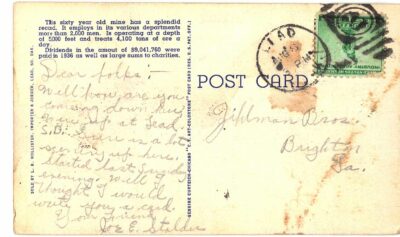 This sixty year old mine has a splendid
record. It employs in its various departments
more than 2,000 men. Is operating at a depth
of 5,000 feet and treats 4,100 tons of ore a
day.
Dividends in the amount of $9,041,760 were
paid in 1936 as well as large sums to charities.
SOLD BY L. B. HOLLISTER, IMPORTER & JOBBER, LEAD, SO. DAK.
Dear folks:-
Well how are you
coming down here
up at Lead,
S.D. There is a lot
scenery up here.
Started last Sunday
evening. Well I
thought I would
write you a card.
Your friend
E. Stalder
GENUINE CURTEICH-CHICAGO "C.T. ART-COLORTONE" POST CARD (REG. U.S. PAT. OFF.)
POST CARD
LEAD
PM
Jillman Bros.
Brighton
Ia.